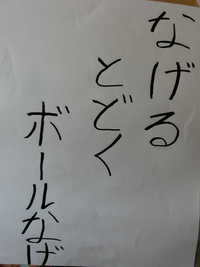 なげる
とどく
ボールなげ